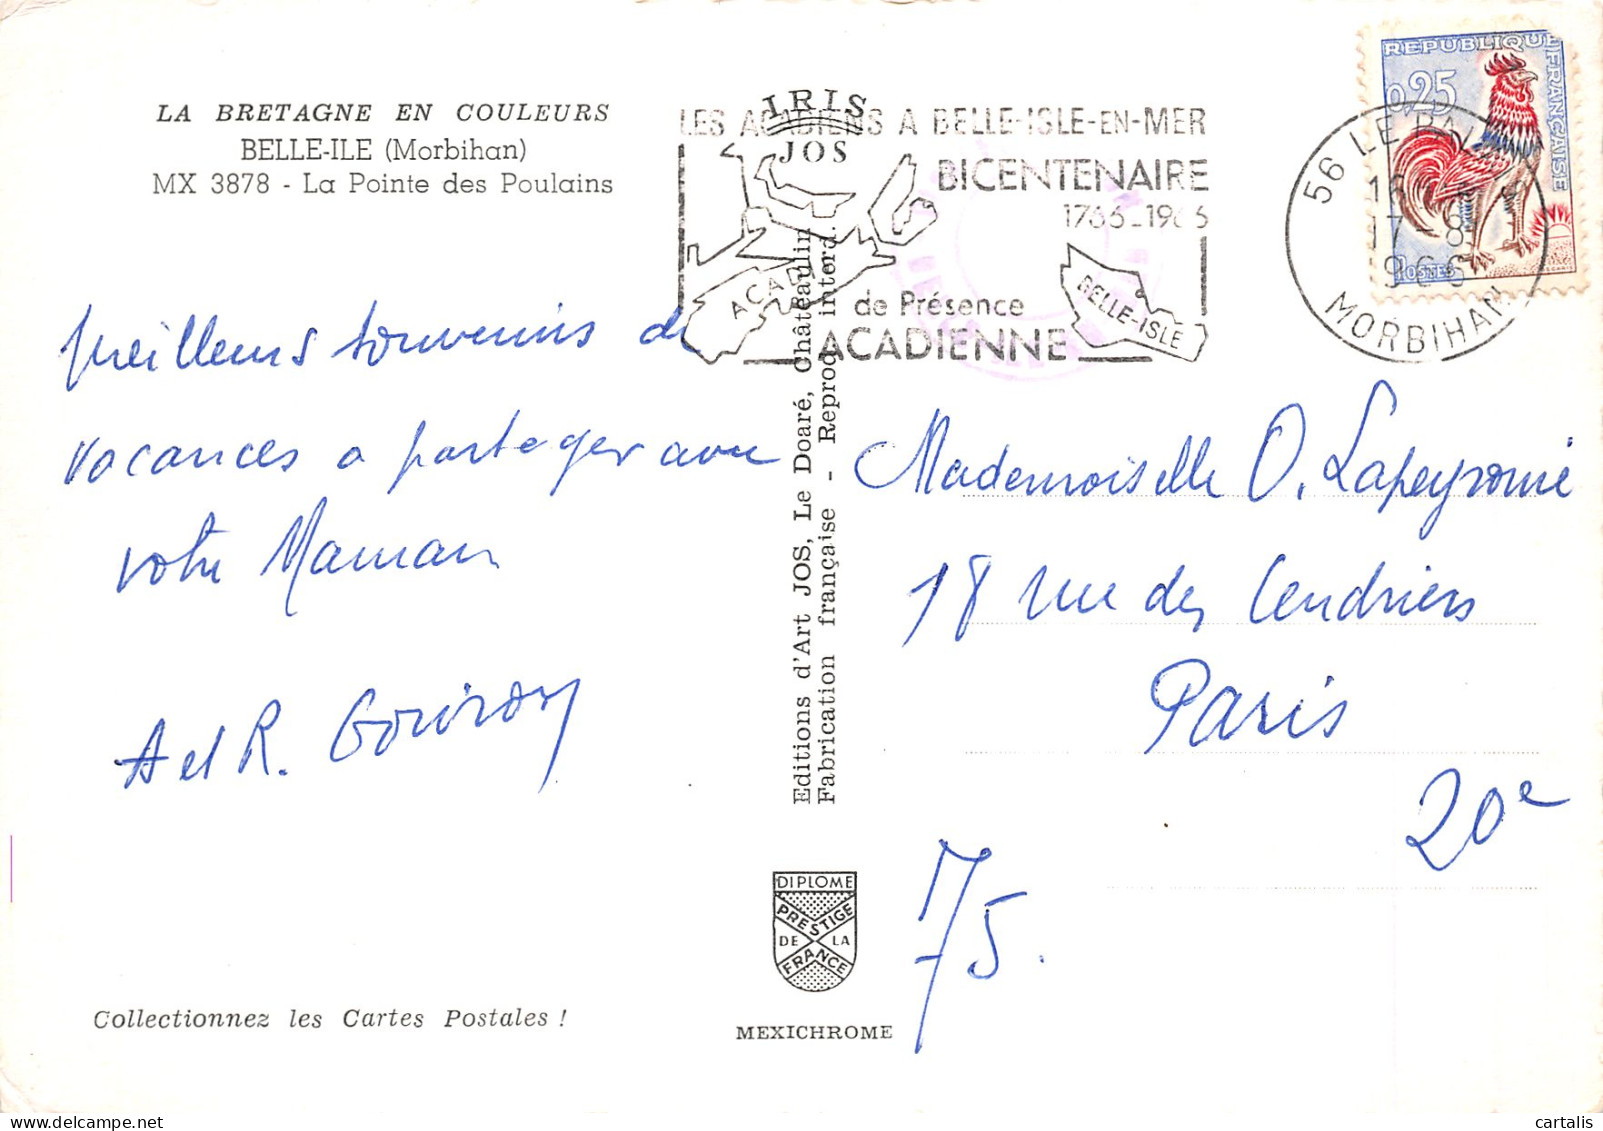 LA BRETAGNE EN COULEURS
BELLE-ILE (Morbihan)
MX 3878 - La Pointe des Poulains
IRIS
JOS
LES ACADIENS A BELLE-ISLE-EN-MER
BICENTENAIRE
1766-1966
ACADIE
BELLE-ISLE
de Présence
ACADIENNE
REPUBLIQUE FRANÇAISE
0,25
POSTES
56 LE PALAIS
17-8
1966
MORBIHAN
Meilleurs souvenirs de
vacances a partager avec
votre Maman
A et R.
Editions d'Art JOS, Le Doaré, Châteaulin
Fabrication française - Reprod. interd.
Mademoiselle O. Lapeyronie
18 rue des Cendriers
Paris
20e
75.
DIPLOME
PRESTIGE
DE LA
FRANCE
MEXICHROME
Collectionnez les Cartes Postales !
cartalis
www.delcampe.net